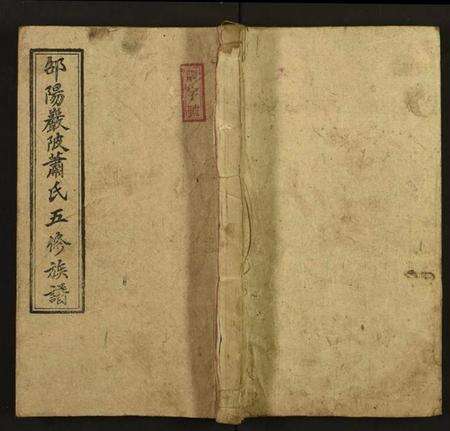 邵陽巖陂蕭氏五修族譜